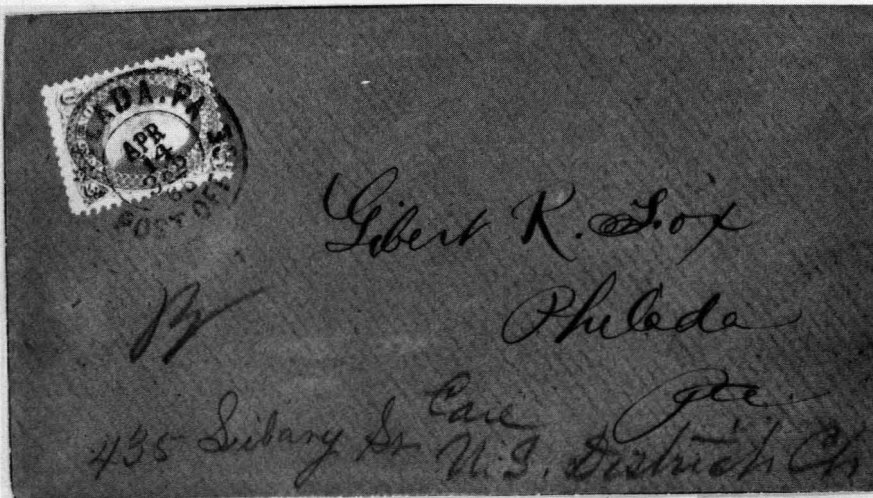 LADA. PA
APR
14
POST OFFICE
Gilbert R. Fox
Philada
Pa.
Care
435 Library St U.S. District Ct